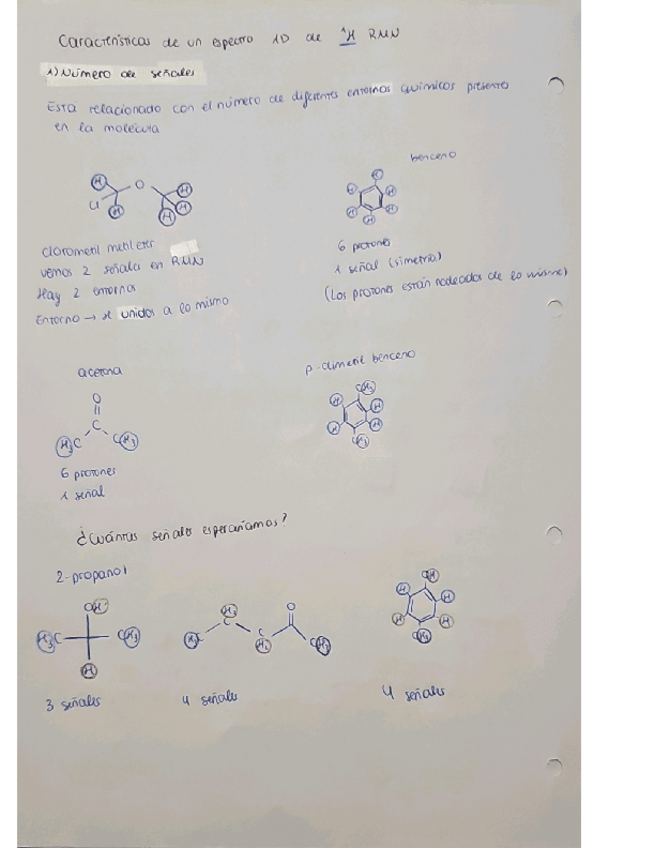 Características de un espectro 1D de ¹H RMN
1) Número de señales
Está relacionado con el número de diferentes entornos químicos presentes
en la molécula
benceno
H
O
H
Cl
H
H
H
H
H
H
H
H
H
clorometil metileter
vemos 2 señales en RMN
Hay 2 entornos
Entorno → H unidos a lo mismo
6 protones
1 señal (simetría)
(Los protones están rodeados de lo mismo)
acetona
p-dimetil benceno
O
C
H₃C
CH₃
CH₃
H
H
H
H
CH₃
6 protones
1 señal
¿Cuántas señales esperaríamos?
2-propanol
OH
H₃C
CH₃
H
H₂
C
C
H₂
O
CH₃
OH
H
H
H
H
CH₃
3 señales
4 señales
4 señales